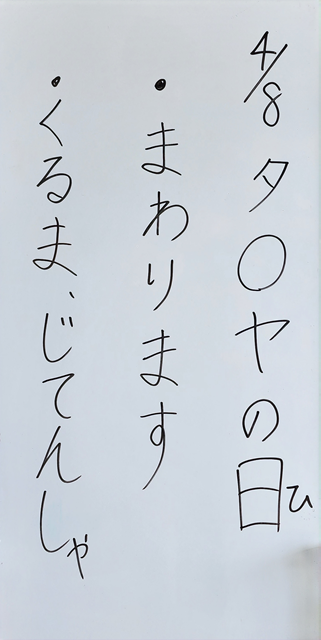 4/8 タ〇ヤの日ひ
・まわります
・くるま、じてんしゃ